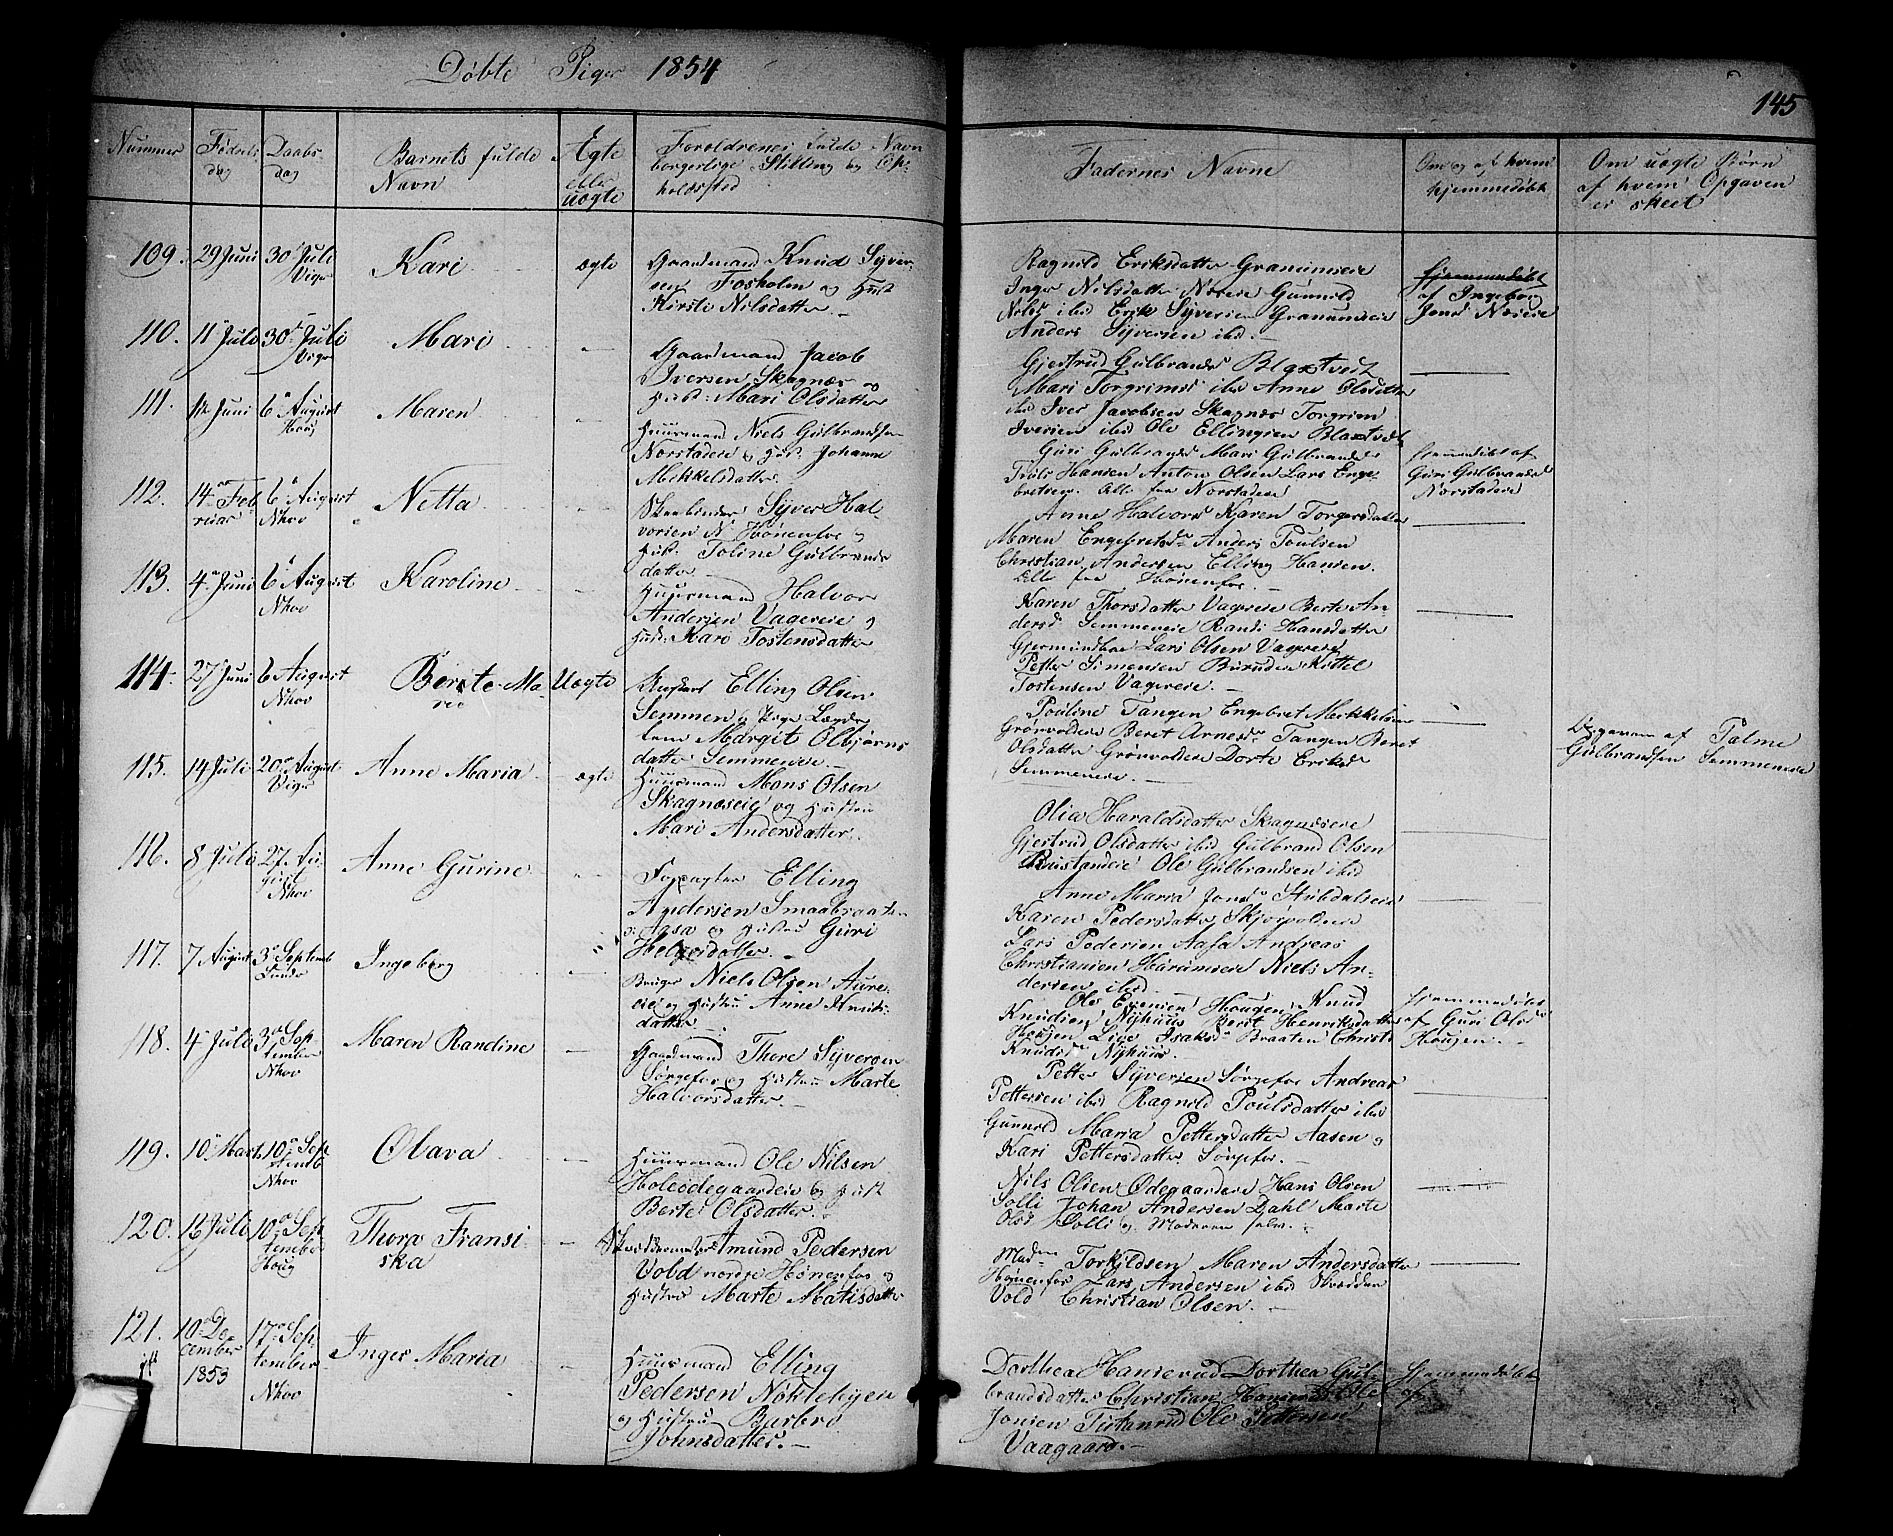 Døbte Piger 1854
145
Nummer
Fødselsdag
Daabsdag
Barnets fulde Navn
Ægte eller uægte
Forældrenes fulde Navn borgerlige Stilling og Opholdssted
Faddernes Navne
Om og af hvem hjemmedøbt
Om uægte Børn af hvem Opgaven er skeet
109.
29 Juni
30 Juli Viger
Kari
ægte
Gaardmand Knud Syver-
sen Fosholm og Hust
Kirsti Nilsdatter.
Ragnild Eriksdatter
Inger Nilsdatter Gunnild
ibid Erik Syversen
Anders Syversen ibid.
hjemmedøbt
af Ingeborg
110.
11 Juli
30 Juli Viger
Mari
Gaardmand Jacob
Iversen Skagnæs og
Hust: Mari Olsdatter
Gjertrud Gulbrands
Mari Torgrimsd ibid Anne Olsdatter
ibid Iver Jacobsen Skagnæs Torgrim
Iversen ibid Ole Ellingsen
111.
Juni
6 August Houg
Maren
Huusmand Niels Gulbrandsen
Norstadeie og Hust. Johanne
Mikkelsdatter.
Guri Gulbrandsd Mari Gulbrandsd
Truls Hansen Anton Olsen Lars Enge-
bretsen. Alle fra Norstadeie
hjemmedøbt af
Guri Gulbrandsd
Norstadeie
112.
14 Februar
6 August Nhov
Netta
Syver Hal-
vorsen N Hønenfos og
Hust. Toline Gulbrands
datter
Anne Halvorsd Karen Torgersdatter
Maren Engebretsd Anders Poulsen
Christian Andersen Elling Hansen.
Alle fra Hønenfos.
113.
4 Juni
6 August Nhov
Karoline
Huusmand Halvor
Andersen Vagereie og
Hust. Kari Tostensdatter
Karen Thorsdatter Vagereie Berte An-
dersd Semmeneie Randi Hansdatter
Lars Olsen Vagereie
Petter Simensen Kittel
Tostensen Vagereie.
114.
27 Juni
6 August Nhov
Berte Ma-
rie
Uægte
Ungkarl Elling Olsen
Semmen og Pige
Margit Olbjørns
datter Semmeneie.
Pouline Tangen Engebret Mikkelsen
Grønvoldeie Beret Arnesd Tangen Beret
Olsdatter Grønvoldeie Dorte Eriksd
Semmeneie.
Opgaven af Palme
Gulbrandsen Semmeneie
115.
14 Juli
20 August Viger
Anne Maria
ægte
Huusmand Mons Olsen
Skagnæseie og Hustru
Mari Andersdatter.
Olia Haraldsdatter Skagnæseie
Gjertrud Olsdatter ibid Gulbrand Olsen
Ole Gulbrandsen ibid
116.
8 Juli
27 Au-
gust
Nhov
Anne Gurine
Forpagter Elling
Andersen Smaabraaten
Aasa og Hustru Guri
Helgesdatter.
Anne Maria Jonsd
Karen Pedersdatter
Lars Pedersen Aasa Andreas
Christiansen Niels An-
dersen ibid.
117.
7 August
3 Septemb
Lunder
Ingeborg
Bruger Niels Olsen Aure-
eie og Hustru Anne Knuds-
datter
Ole Evensen Hougen Knud
Knudsen Nyhuus Berit Henriksdatter
Hougen Isaksd Braaten Christi
Knudsd Nyhuus.
hjemmedøbt
af Guri Olsd
Hougen.
118.
4 Juli
3 Sep-
tember
Nhov
Maren Randine
Gaardmand Thore Syversen
Sørgefos og Hustru Marte
Halvorsdatter.
Petter Syversen Sørgefos Andreas
Pettersen ibid Ragnild Poulsdatter ibid
Gunnild Maria Pettersdatter Aasen og
Kari Pettersdatter Sørgefos.
119.
10 Marts
10 Sep-
temb
Nhov
Olava
Huusmand Ole Nilsen
Holesdegaardeie og Hust
Berte Olsdatter.
Nils Olsen Ødegaardeie Hans Olsen
Solli Johan Andersen Dahl Marte
Olsd Solli og Moderen selv.
120.
16 Juli
10 Sep-
tember
Houg
Thora Fransi-
ska
Amund Pedersen
Vold nordre Hønenfos og
Hustru Marte Matisdatter
Mad Torkildsen Maren Andersdatter
Hønenfos Lars Andersen ibid Skrædder
Vold Christian Olsen.
121.
10 De-
cember
1853
17 Sep-
tember
Nhov
Inger Maria
Huusmand Elling
Pedersen Nøklebyen
og Hustru Barbro
Johnsdatter.
Dorthea Hanserud Dorthea Gul-
brandsdatter Christian Hansen Ole
Jonsen Ole Pettersen
Vaagaard.
Hjemmedøbt
af